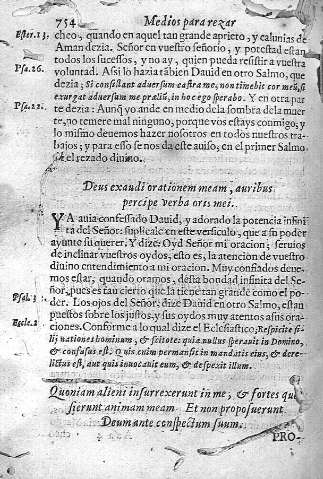 754 Medios para rezar
Ester.13. cheo, quando en aquel tan grande aprieto, y calunias de
Aman dezia. Señor en vuestro señorio, y potestad estan
todos los sucessos, y no ay, quien pueda resistir a vuestra
Psa.26. voluntad. Assi lo hazia tãbien Dauid en otro Salmo, que
dezia; Si consistant aduersum castra me, non timebit cor meũ, si
exurgat aduersum me præliũ, in hoc ego sperabo. Y en otra par
Psa.22. te dezia: Aunq̃ yo ande en medio de la sombra de la muer
te, no temere mal ninguno, porque vos estays conmigo; y
lo mismo deuemos hazer nosotros en todos nuestros tra-
bajos; y para esso se nos da este auiso, en el primer Salmo
del rezado diuino.
Deus exaudi orationem meam, auribus
percipe verba oris mei.
YA auia confessado Dauid, y adorado la potencia infini
ta del Señor: suplicale en este versiculo, que a su poder
ayunte su querer. Y dize: Oyd Señor mi oracion; seruios
de inclinar vuestros oydos, esto es, la atencion de vuestro
diuino entendimiento a mi oracion. Muy confiados deue-
mos estar, quando oramos, desta bondad infinita del Se-
ñor, pues es tan cierto que la tiene tan grande como el po-
Psal.3 der. Los ojos del Señor: dize Dauid en otro Salmo, estan
puestos sobre los justos, y sus oydos muy atentos a sus ora-
Eccle.2 ciones. Conforme a lo qual dize el Eclesiastico; Respicite fi-
lij nationes hominum, & scitote: quia nullus sperauit in Domino,
& confusus est: Quis enim permansit in mandatis eius, & dere-
lictus est, aut quis inuocauit eum, & despexit illum.
Quoniam alieni insurrexerunt in me, & fortes qu
sierunt animam meam Et non proposuerunt
Deum ante conspectum suum.
PRO-